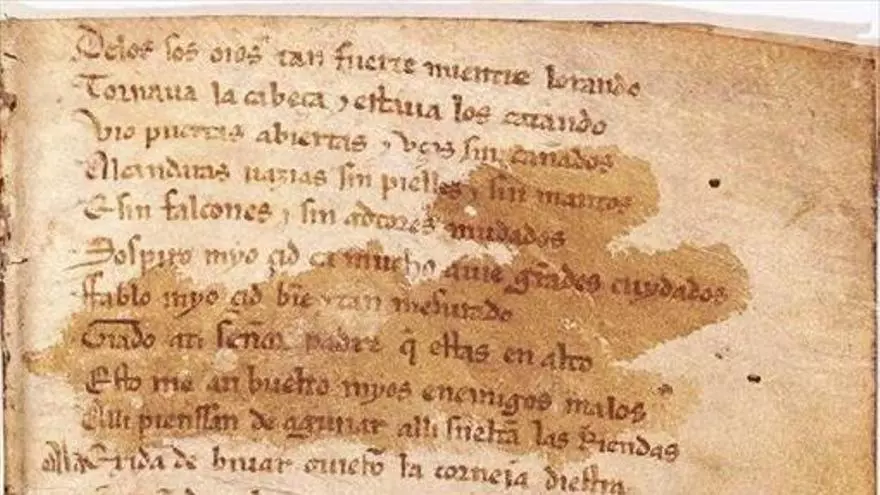 Delos sos oios tan fuerte mientre lorando
Tornaua la cabeça ⁊ estaua los catando
Vio puertas abiertas ⁊ vços sin cañados
Alcandaras uazias sin pielles ⁊ sin mantos
E sin falcones ⁊ sin adtores mudados
Sospiro myo çid ca mucho auie grãdes cuydados
Fablo myo çid biẽ ⁊ tan mesurado
Grado ati señor padre q̃ estas en alto
Esto me an buelto myos enemigos malos
Alli pienssan de aguiiar alli sueltã las Riendas
Ala Exida de biuar ouierõ la corneja diestra